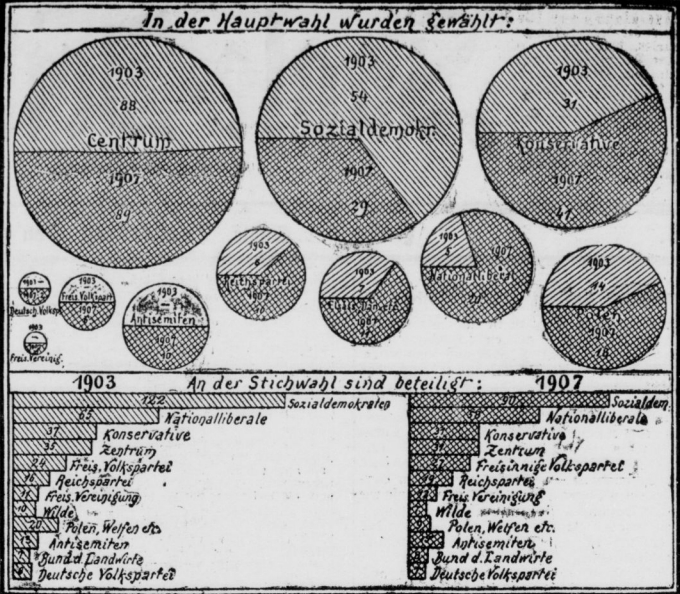 In der Hauptwahl wurden gewählt:
1903
88
Centrum
1907
89
1903
54
Sozialdemokr.
1907
29
1903
31
Konservative
1907
41
1903
Deutsch. Volksp.
1903
Freis. Volkspart
1907
1903
Freis. Vereinig.
1903 –
Antisemiten
1907
10
1903
6
Reichspartei
1907
10
1903
1907
1903
5
1907
Nationalliberal
1903
14
Polen
1907
19
1903 An der Stichwahl sind beteiligt: 1907
122 Sozialdemokraten
65 Nationalliberale
37 Konservative
35 Zentrum
24 Freis. Volkspartei
16 Reichspartei
11 Freis. Vereinigung
10 Wilde
20 Polen, Welfen etc.
Antisemiten
7 Bund d. Landwirte
Deutsche Volkspartei
90 Sozialdem.
58 Nationalliberale
Konservative
Zentrum
Freisinnige Volkspartei
Reichspartei
Freis. Vereinigung
Wilde
Polen, Welfen etc.
Antisemiten
Bund d. Landwirte
Deutsche Volkspartei